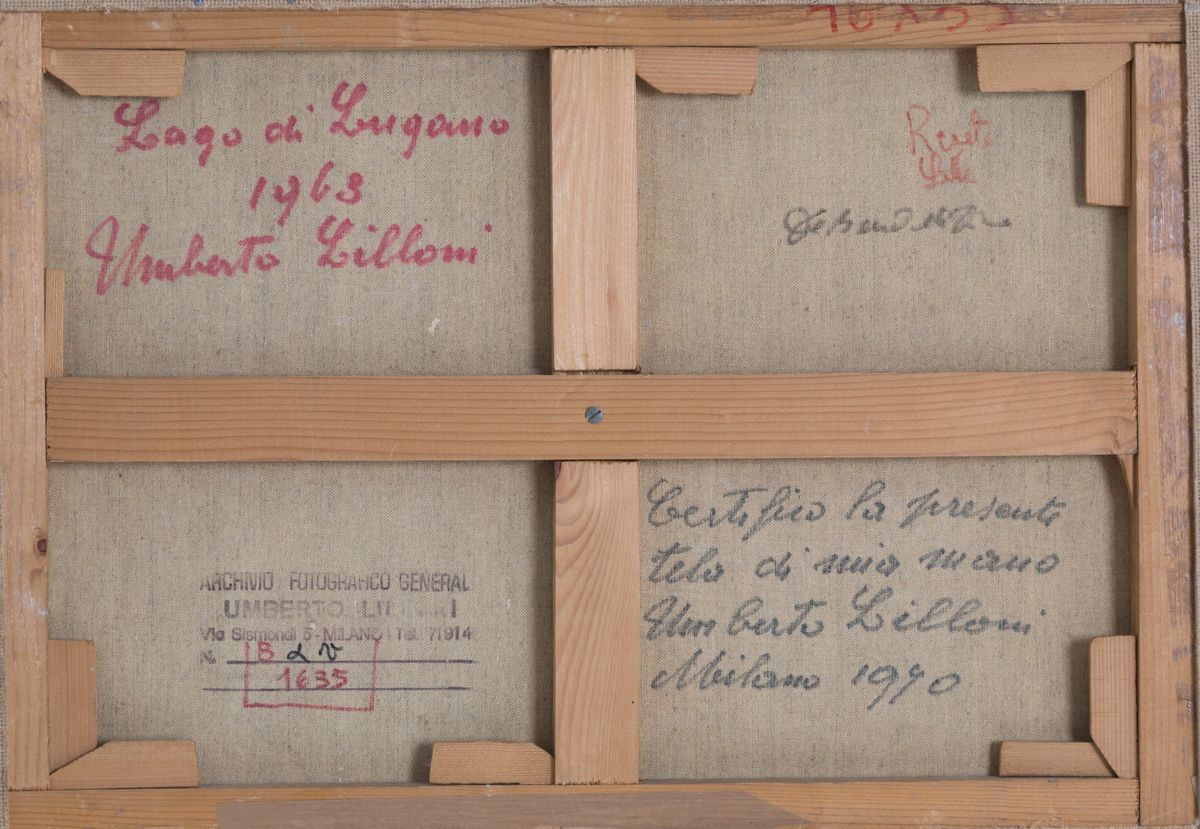 Lago di Lugano
1963
Umberto Lilloni
ARCHIVIO FOTOGRAFICO GENERAL
UMBERTO LILLONI
Via Sismondi 5 - MILANO - Tel. 71914
N. B
1635
Certifico la presente
tela di mia mano
Umberto Lilloni
Milano 1970